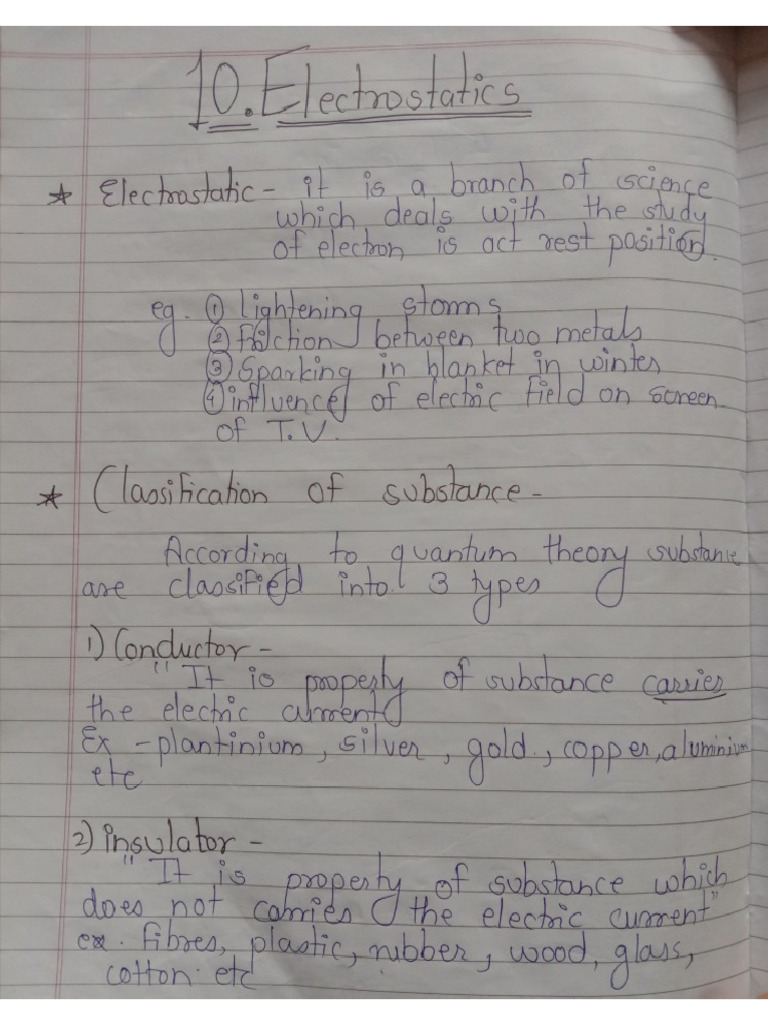 10. Electrostatics
* Electrostatic - it is a branch of science
which deals with the study
of electron is act rest position.
eg. ① lightening storms
② friction between two metals
③ Sparking in blanket in winter
④ influence of electric field on screen
of T.V.
* Classification of substance -
According to quantum theory substance
are classified into 3 types
1) Conductor -
"It is property of substance carries
the electric current
Ex - plantinium, silver, gold, copper, aluminium
etc
2) insulator -
"It is property of substance which
does not carries the electric current"
ex. fibres, plastic, rubber, wood, glass,
cotton. etc